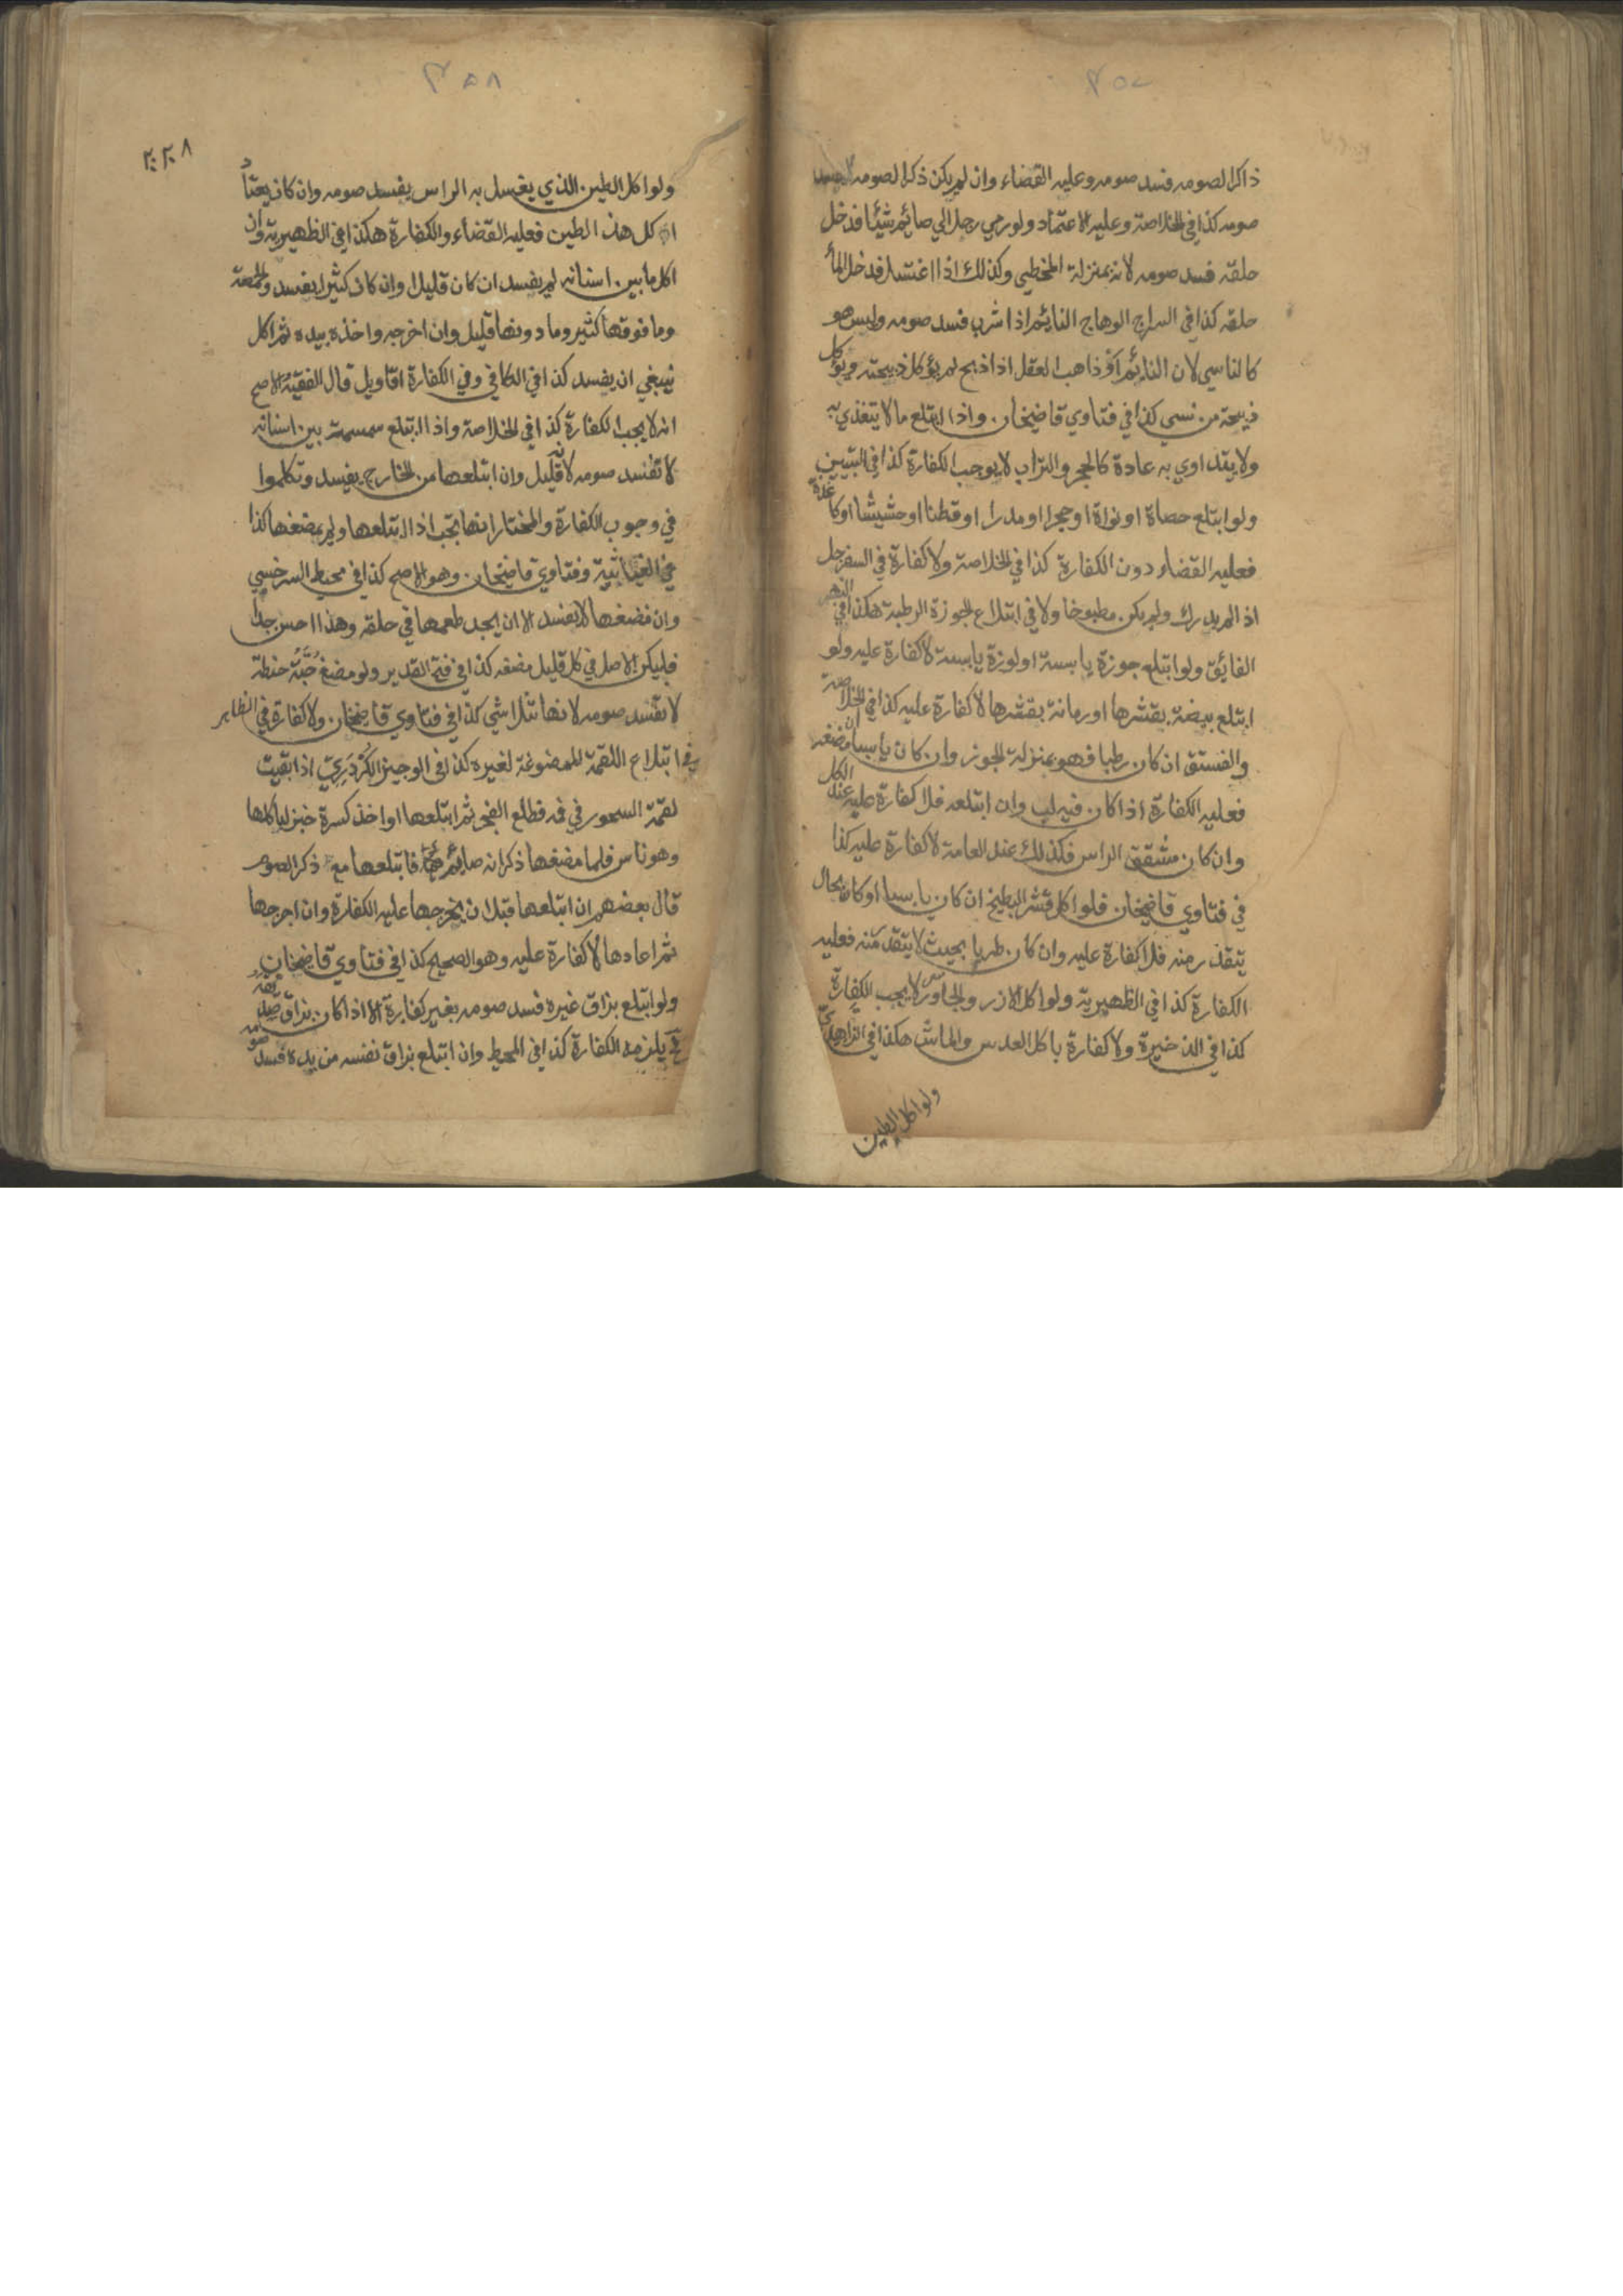 ٣٥٧
ذاكرا لصومه فسد صومه وعليه القضاء وان لم يكن ذكرا لصومه لا يفسد
صومه كذا في الخلاصة وعليه الاعتماد ولو رمي رجل الي صائم شيئا فدخل
حلقه فسد صومه لانه بمنزلة المخطي وكذلك اذا اغتسل فدخل الماٴ
حلقه كذا في السراج الوهاج النائم اذا شرب فسد صومه وليس هو
كالناسي لان النائم او ذاهب العقل اذا ذبح لم يؤكل ذبيحته ويؤكل
ذبيحة من نسي كذا في فتاوي قاضيخان واذا ابتلع ما لا يتغذي به
ولا يتداوي به عادة كالحجر والتراب لا يوجب الكفارة كذا في التبيين
ولو ابتلع حصاة او نواة او حجرا او مدرا او قطنا او حشيشا او كاغذة
فعليه القضاء دون الكفارة كذا في الخلاصة ولا كفارة في السفرجل
اذا لم يدرك ولم يكن مطبوخا ولا في ابتلاع الجوزة الرطبة هكذا في النهر
الفائق ولو ابتلع جوزة يابسة او لوزة يابسة لا كفارة عليه ولو
ابتلع بيضة بقشرها او رمانة بقشرها لا كفارة عليه كذا في الخلاصة
والفستق ان كان رطبا فهو بمنزلة الجوز وان كان يابسا ان مضغه
فعليه الكفارة اذا كان فيه لب وان ابتلعه فلا كفارة عليه عند الكل
وان كان مشقق الراس فكذلك عند العامة لا كفارة عليه كذا
في فتاوي قاضيخان فلو اكل قشر البطيخ ان كان يابسا او كان بحال
يتقذر منه فلا كفارة عليه وان كان طريا بحيث لا يتقذر منه فعليه
الكفارة كذا في الظهيرية ولو اكل الارز والجاورس لا يجب الكفارة
كذا في الذخيرة ولا كفارة باكل العدس والماش هكذا في الزاهدي
ولو اكل الطين
٣٥٨
٢٠٢٠٨
ولو اكل الطين الذي يغسل به الراس يفسد صومه وان كان يعتاد
اكل هذا الطين فعليه القضاء والكفارة هكذا في الظهيرية وان
اكل ما بين اسنانه لم يفسد ان كان قليلا وان كان كثيرا يفسد والحمصة
وما فوقها كثير وما دونها قليل وان اخرجه واخذه بيده ثم اكل
ينبغي ان يفسد كذا في الكافي وفي الكفارة اقاويل قال الفقيه الاصح
انه لا يجب الكفارة كذا في الخلاصة واذا ابتلع سمسمة بين اسنانه
لا تفسد صومه لانه قليل وان ابتلعها من الخارج يفسد وتكلموا
في وجوب الكفارة والمختار انها تجب اذا ابتلعها ولم يمضغها كذا
في الغياثية وفتاوي قاضيخان وهو الاصح كذا في محيط السرخسي
وان مضغها لا يفسد الا ان يجد طعمها في حلقه وهذا احسن جدا
فليكن الاصل في كل قليل مضغه كذا في فتح القدير ولو مضغ حَبَّةُ حنطة
لا تفسد صومه لانها تتلاشي كذا في فتاوي قاضيخان ولا كفارة في الظاهر
في ابتلاع اللقمة الممضوغة لغيره كذا في الوجيز الكَرْدَرِيّ اذا بقيت
لقمة السحور في فمه فطلع الفجر ثم ابتلعها او اخذ كسرة خبز لياكلها
وهو ناس فلما مضغها ذكر انه صائم فابتلعها مع ذكر الصوم
قال بعضهم ان ابتلعها قبل ان يخرجها عليه الكفارة وان اخرجها
ثم اعادها لا كفارة عليه وهو الصحيح كذا في فتاوي قاضيخان
ولو ابتلع بزاق غيره فسد صومه بغير كفارة الا اذا كان بزاق صديقه
فح يلزمه الكفارة كذا في المحيط وان ابتلع بزاق نفسه من يده فسد صومه